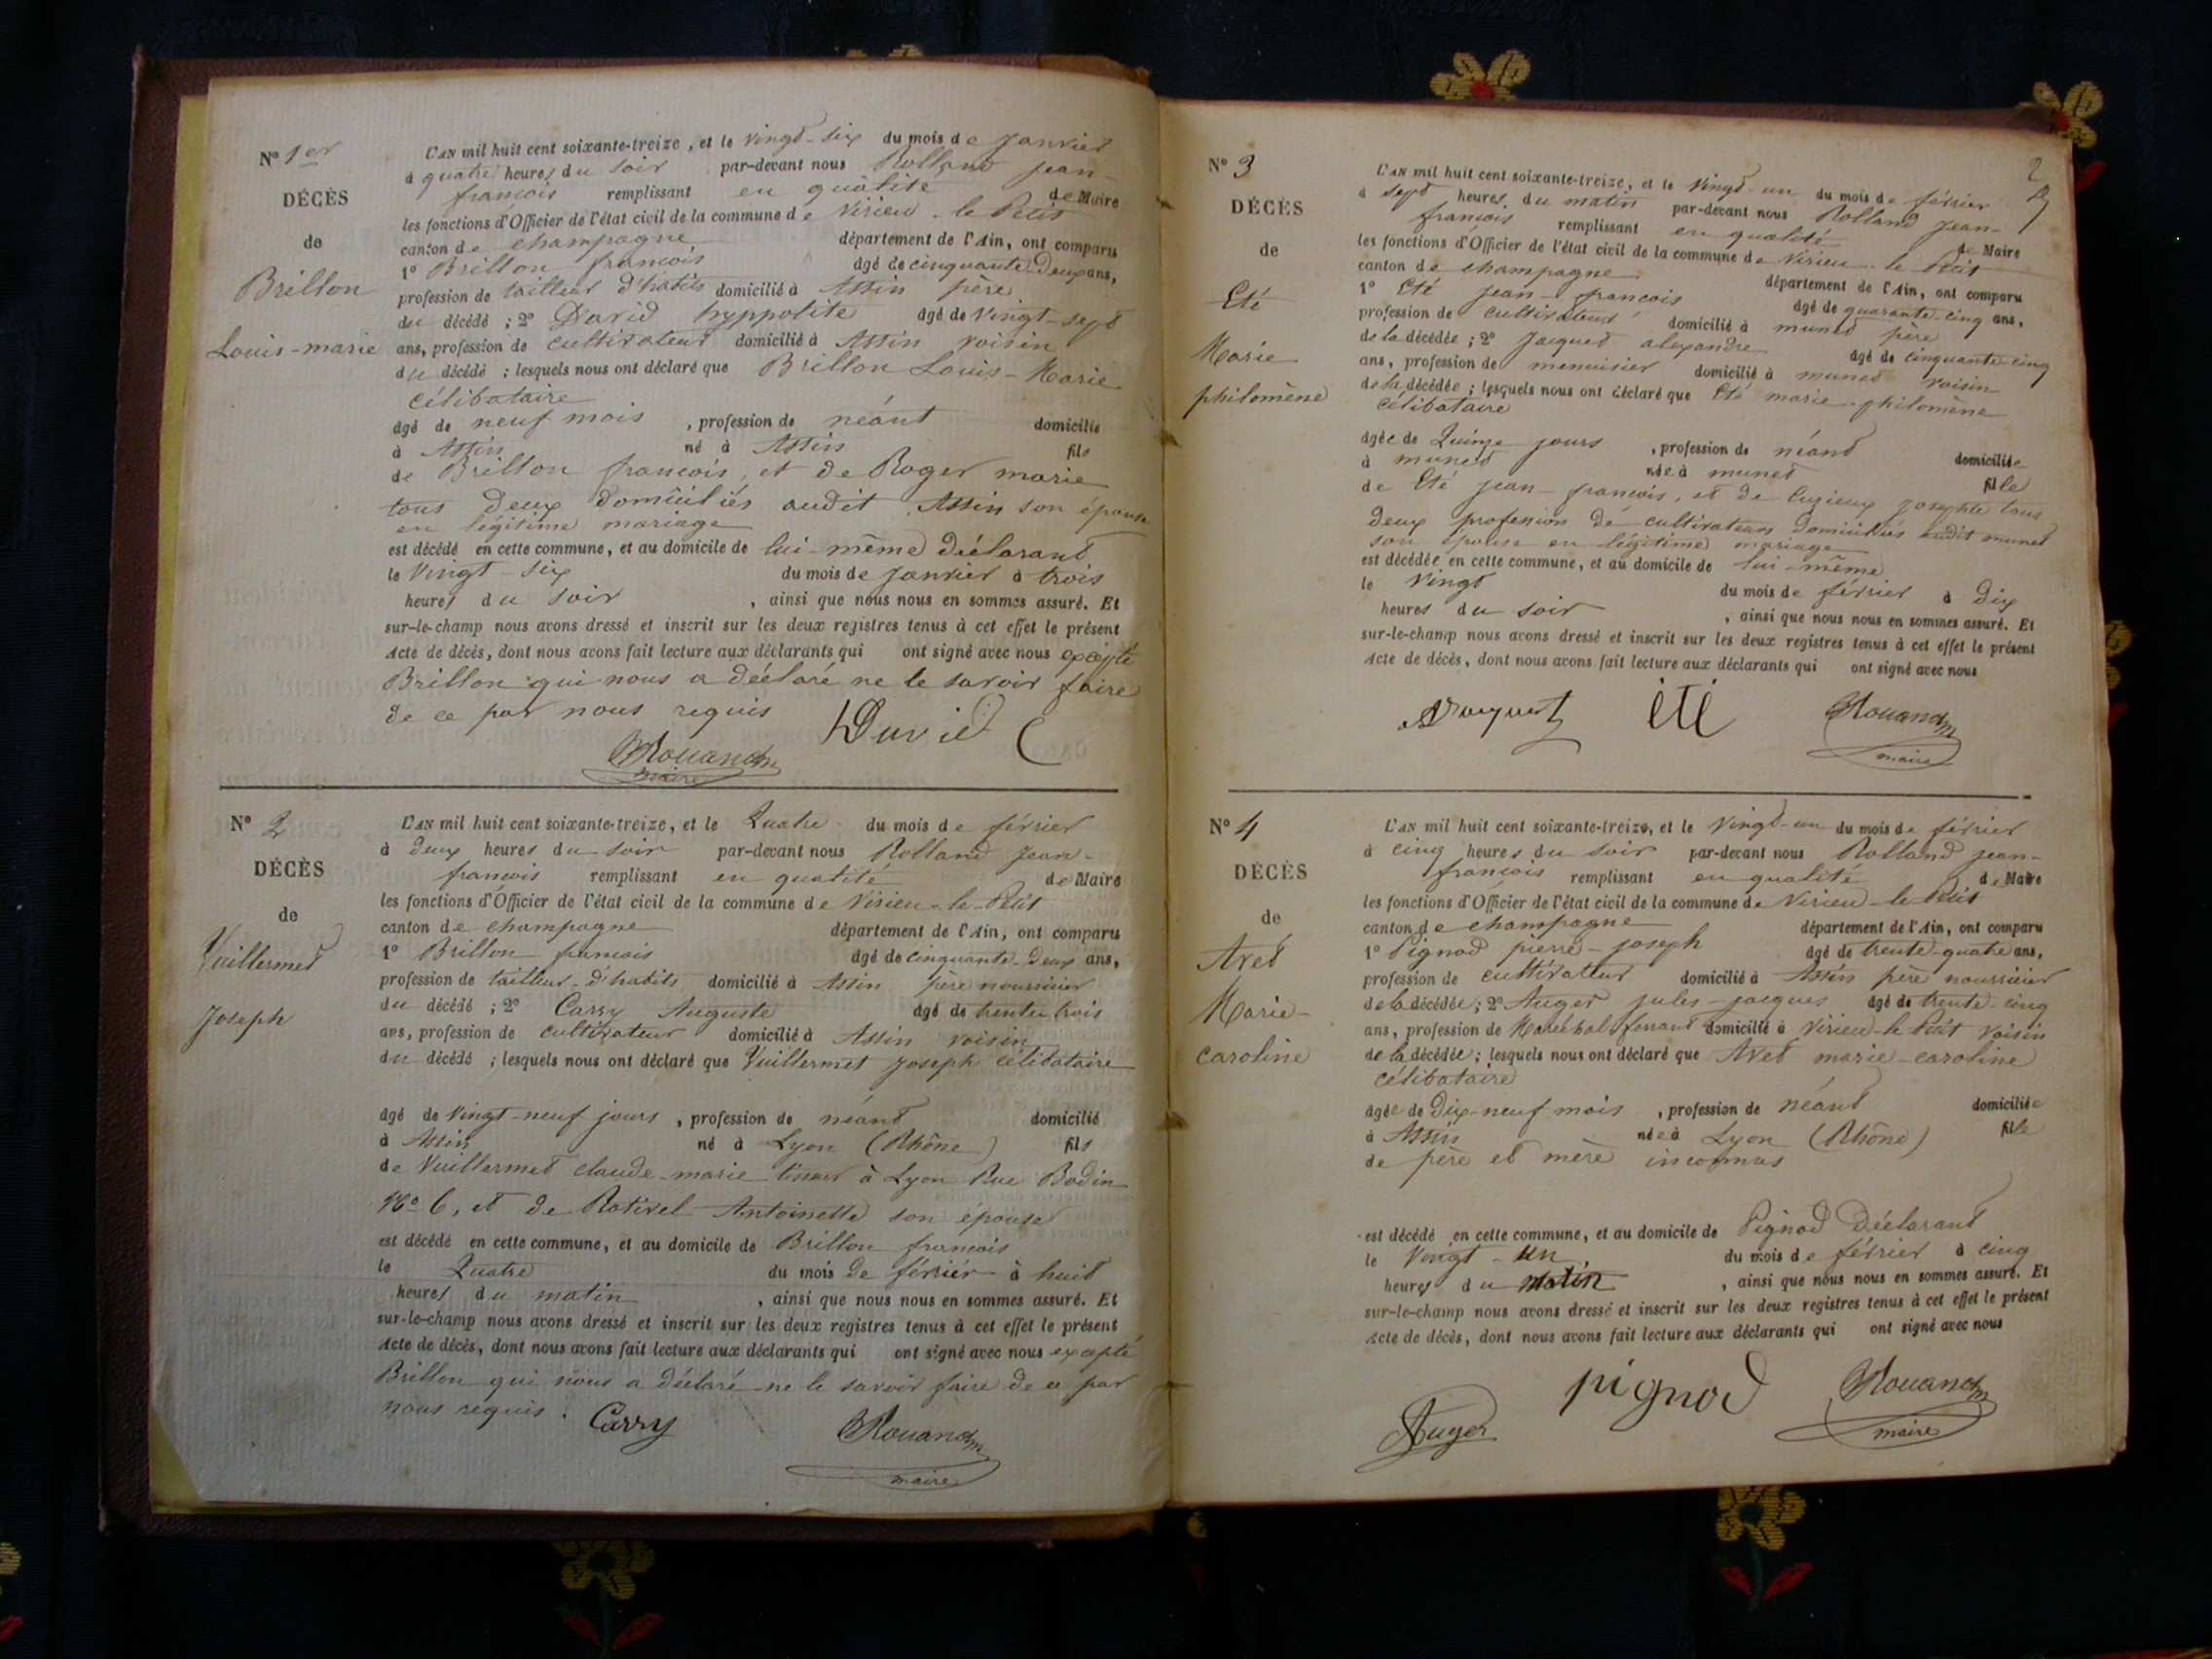 N° 1er
DÉCÈS
de
Brillon
Louis-marie
L'AN mil huit cent soixante-treize, et le vingt-six du mois de janvier
à quatre heures du soir par-devant nous Rolland jean-
francois remplissant en qualité de Maire
les fonctions d'Officier de l'état civil de la commune de Virieu-le-Petit
canton de champagne département de l'Ain, ont comparu
1° Brillon francois âgé de cinquante-deux ans,
profession de tailleur d'habits domicilié à Assin père
du décédé ; 2° David hyppolite âgé de vingt-sept
ans, profession de cultivateur domicilié à Assin voisin
du décédé ; lesquels nous ont déclaré que Brillon Louis-Marie
célibataire
âgé de neuf mois , profession de néant domicilié
à Assin né à Assin fils
de Brillon francois, et de Roger marie
tous deux domiciliés audit Assin son épouse
en légitime mariage
est décédé en cette commune, et au domicile de lui-même déclarant
le vingt-six du mois de janvier à trois
heures du soir , ainsi que nous nous en sommes assuré. Et
sur-le-champ nous avons dressé et inscrit sur les deux registres tenus à cet effet le présent
Acte de décès, dont nous avons fait lecture aux déclarants qui ont signé avec nous excepté
Brillon qui nous a déclaré ne le savoir faire
de ce par nous requis
David
maire
N° 2
DÉCÈS
de
Vuillermet
Joseph
L'AN mil huit cent soixante-treize, et le Quatre du mois de février
à deux heures du soir par-devant nous Rolland jean-
francois remplissant en qualité de Maire
les fonctions d'Officier de l'état civil de la commune de Virieu-le-Petit
canton de champagne département de l'Ain, ont comparu
1° Brillon francois âgé de cinquante-deux ans,
profession de tailleur d'habits domicilié à Assin père nourricier
du décédé ; 2° Carry Auguste âgé de trente trois
ans, profession de cultivateur domicilié à Assin voisin
du décédé ; lesquels nous ont déclaré que Vuillermet joseph célibataire
âgé de vingt-neuf jours , profession de néant domicilié
à Assin né à Lyon (Rhône) fils
de Vuillermet claude-marie tisseur à Lyon Rue Bodin
N° 6, et de Rotivel Antoinette son épouse
est décédé en cette commune, et au domicile de Brillon francois
le Quatre du mois de février à huit
heures du matin , ainsi que nous nous en sommes assuré. Et
sur-le-champ nous avons dressé et inscrit sur les deux registres tenus à cet effet le présent
Acte de décès, dont nous avons fait lecture aux déclarants qui ont signé avec nous excepté
Brillon qui nous a déclaré ne le savoir faire de ce par
nous requis.
Carry
maire
2
N° 3
DÉCÈS
de
Eté
Marie
philomène
L'AN mil huit cent soixante-treize, et le vingt-un du mois de février
à sept heures du matin par-devant nous Rolland jean-
francois remplissant en qualité de Maire
les fonctions d'Officier de l'état civil de la commune de Virieu-le-Petit
canton de champagne département de l'Ain, ont comparu
1° Eté jean-francois âgé de quarante-cinq ans,
profession de cultivateur domicilié à munet père
de la décédée ; 2° Jacquet alexandre âgé de cinquante-cinq
ans, profession de menuisier domicilié à munet voisin
de la décédée ; lesquels nous ont déclaré que Eté marie-philomène
célibataire
âgée de Quinze jours , profession de néant domiciliée
à munet née à munet fille
de Eté jean-francois, et de Luzieux josephte tous
deux profession de cultivateurs domiciliés audit munet
son épouse en légitime mariage
est décédée en cette commune, et au domicile de lui-même
le vingt du mois de février à dix
heures du soir , ainsi que nous nous en sommes assuré. Et
sur-le-champ nous avons dressé et inscrit sur les deux registres tenus à cet effet le présent
Acte de décès, dont nous avons fait lecture aux déclarants qui ont signé avec nous
été
maire
N° 4
DÉCÈS
de
Avet
Marie-
caroline
L'AN mil huit cent soixante-treize, et le vingt-un du mois de février
à cinq heures du soir par-devant nous Rolland jean-
francois remplissant en qualité de Maire
les fonctions d'Officier de l'état civil de la commune de Virieu-le-Petit
canton de champagne département de l'Ain, ont comparu
1° Pignod pierre-joseph âgé de trente-quatre ans,
profession de cultivateur domicilié à Assin père nourricier
de la décédée ; 2° Auger jules-jacques âgé de trente-cinq
ans, profession de Maréchal ferrant domicilié à Virieu-le-Petit voisin
de la décédée ; lesquels nous ont déclaré que Avet marie-caroline
célibataire
âgée de Dix-neuf mois , profession de néant domiciliée
à Assin née à Lyon (Rhône) fille
de père et mère inconnus
est décédé en cette commune, et au domicile de Pignod Déclarant
le vingt-un du mois de février à cinq
heures du matin , ainsi que nous nous en sommes assuré. Et
sur-le-champ nous avons dressé et inscrit sur les deux registres tenus à cet effet le présent
Acte de décès, dont nous avons fait lecture aux déclarants qui ont signé avec nous
pignod
Auger
maire